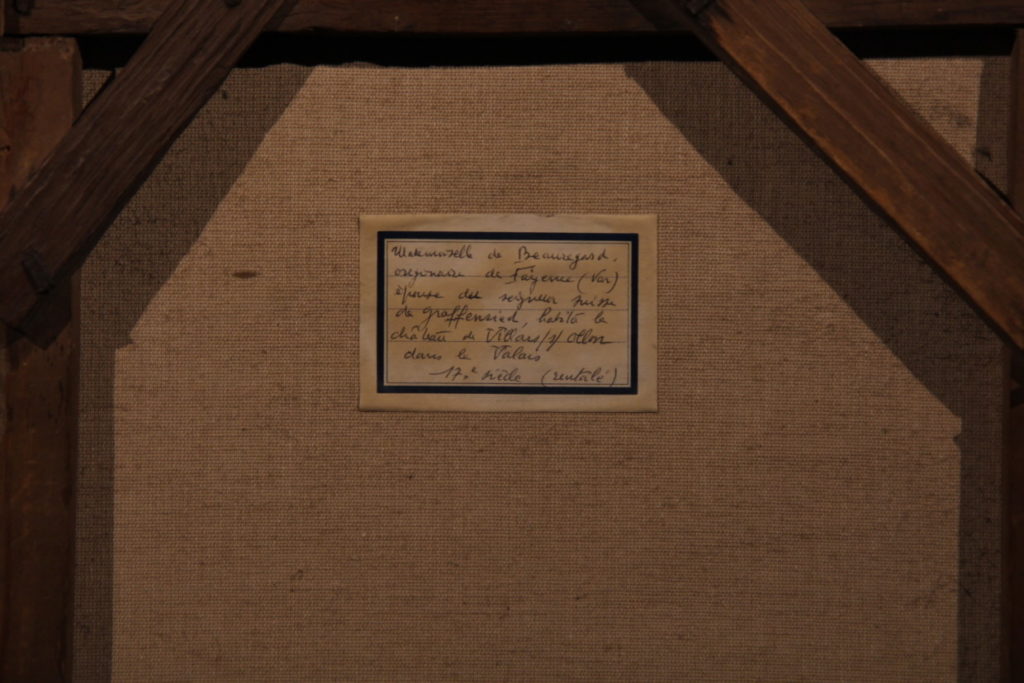 Mademoiselle de Beauregard,
originaire de Fayence (Var)
épouse du seigneur suisse
de Graffensied, habita le
château de Villars/s/ Ollon
dans le Valais
17e siècle (rentoilé)